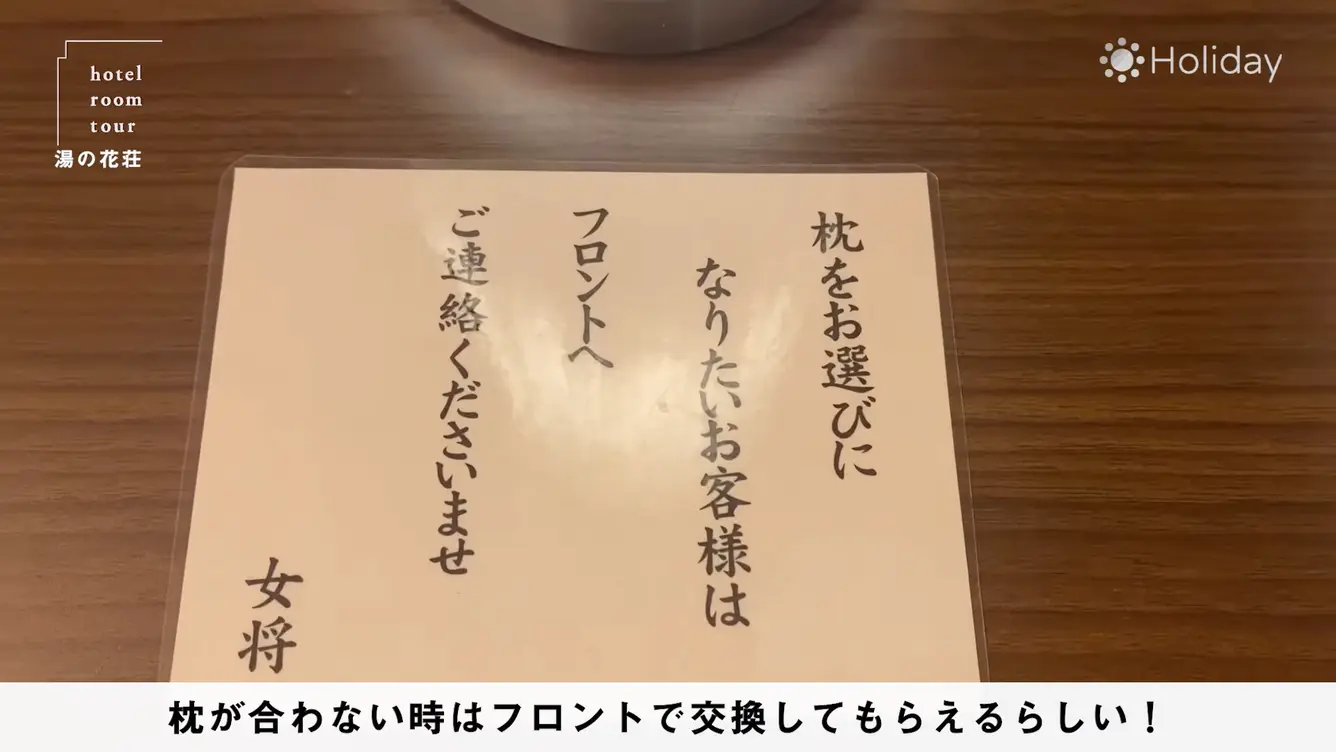 hotel
room
tour
湯の花荘
Holiday
枕をお選びに
なりたいお客様は
フロントへ
ご連絡くださいませ
女将
枕が合わない時はフロントで交換してもらえるらしい！